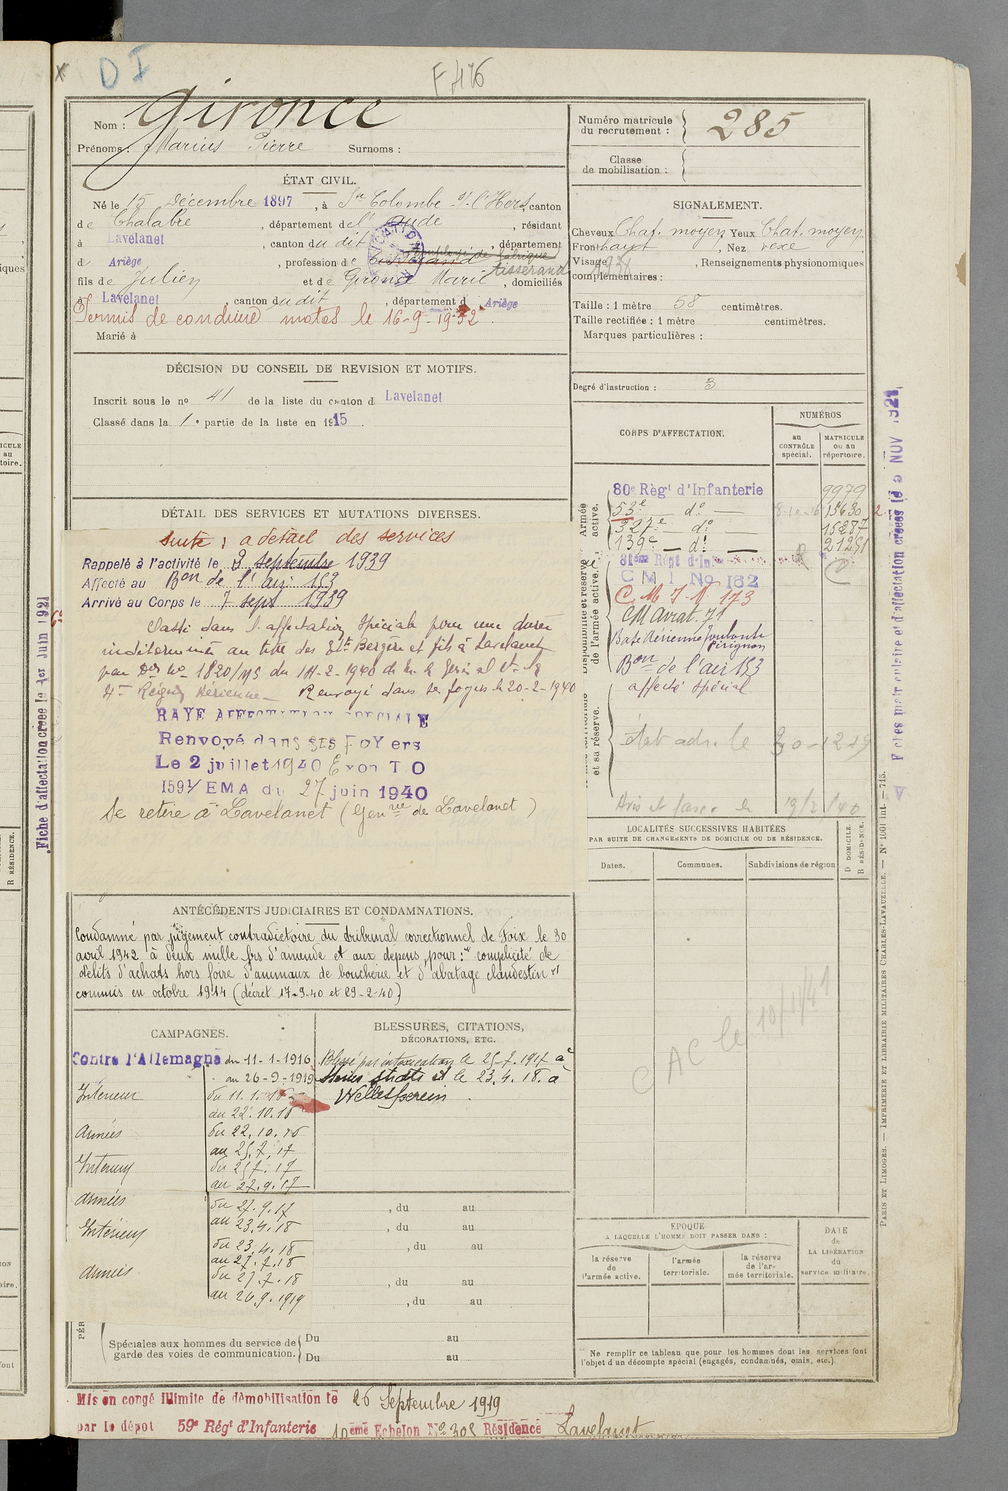 D I
F 416
Nom : Gironce
Prénoms : Marius Pierre Surnoms :
Numéro matricule du recrutement : 285
Classe de mobilisation :
ÉTAT CIVIL.
Né le 15 Décembre 1897, à Ste Colombe s/ l'Hers, canton
de Chalabre, département de l'Aude, résidant
à Lavelanet, canton du dit, département
d Ariège, profession de Tisserand
fils de Julien et de Gironce Marie, domiciliés
à Lavelanet, canton du dit, département d Ariège
Permis de conduire motos le 16-9-1932
Marié à
SIGNALEMENT.
Cheveux Chat. moyen Yeux Chat. moyen
Front haut, Nez vexe
Visage, Renseignements physionomiques
complémentaires :
Taille : 1 mètre 58 centimètres.
Taille rectifiée : 1 mètre centimètres.
Marques particulières :
Degré d'instruction : 3
DÉCISION DU CONSEIL DE REVISION ET MOTIFS.
Inscrit sous le nº 41 de la liste du canton d Lavelanet
Classé dans la 1e partie de la liste en 1915
CORPS D'AFFECTATION.
NUMÉROS
au CONTRÔLE spécial.
MATRICULE OU AU répertoire.
Armée active.
Disponibilité et réserve de l'armée active.
et sa réserve.
80e Régt d'Infanterie 9979
53e — do — 15630
327e — do 15287
139e — do 21251
81ème Régt d'Inf
C M I No 182
C. M. I. No 173
CM Aviat. 71
Base Aérienne Toulouse
Pérignon
Bon de l'air 153
affecté spécial
DÉTAIL DES SERVICES ET MUTATIONS DIVERSES.
Suite : a détail des services
Rappelé à l'activité le 3 septembre 1939
Affecté au Bon de l'air 153
Arrivé au Corps le 7 sept 1939
Passé dans l'affectation spéciale pour une durée
indéterminée au titre des Ets Bergère et fils à Lavelanet
par Don No 1820/MS du 14-2-1940 de M. le Général Ct la
4e Région Aérienne — Renvoyé dans ses foyers le 20-2-1940
RAYE AFFECTATION SPECIALE
Renvoyé dans ses FoYers
Le 2 juillet 1940 T O
1591/EMA du 27 juin 1940
Se retire à Lavelanet (Genrie de Lavelanet)
LOCALITÉS SUCCESSIVES HABITÉES
PAR SUITE DE CHANGEMENTS DE DOMICILE OU DE RÉSIDENCE.
Dates. Communes. Subdivisions de région
D DOMICILE.
R RÉSIDENCE.
ANTÉCÉDENTS JUDICIAIRES ET CONDAMNATIONS.
Condamné par jugement contradictoire du tribunal correctionnel de Foix le 30
avril 1942 à deux mille frs d'amende et aux dépens, pour : "complicité de
délits d'achats hors foire d'animaux de boucherie et d'abatage clandestin"
commis en octobre 1914 (décret 17-9-40 et 29-2-40)
C AC le 10/11/41
CAMPAGNES.
Contre l'Allemagne du 11-1-1916
au 26-9-1919
Intérieur du 11.1.16
au 22.10.16
Armées du 22.10.16
au 25.7.17
Intérieur du 25.7.17
au 27.9.17
Armées du 27.9.17
au 23.4.18
Intérieur du 23.4.18
au 27.7.18
Armées du 27.7.18
au 26.9.1919
BLESSURES, CITATIONS,
DÉCORATIONS, ETC.
Blessé par intoxication le 25.7.1917 à
et le 23.4.18. à
, du au
, du au
, du au
, du au
, du au
Spéciales aux hommes du service de garde des voies de communication. Du au
Du au
ÉPOQUE
A LAQUELLE L'HOMME DOIT PASSER DANS :
la réserve de l'armée active.
l'armée territoriale.
la réserve de l'armée territoriale.
DATE de LA LIBÉRATION du service militaire.
Ne remplir ce tableau que pour les hommes dont les services font
l'objet d'un décompte spécial (engagés, condamnés, omis, etc.).
Mis en congé illimité de démobilisation le 26 Septembre 1919
par le dépôt 59e Régt d'Infanterie 10ème Echelon No 305 Résidence Lavelanet
Fiche d'affectation créée le 1er Juin 1921
PARIS ET LIMOGES. — IMPRIMERIE ET LIBRAIRIE MILITAIRES CHARLES-LAVAUZELLE. —